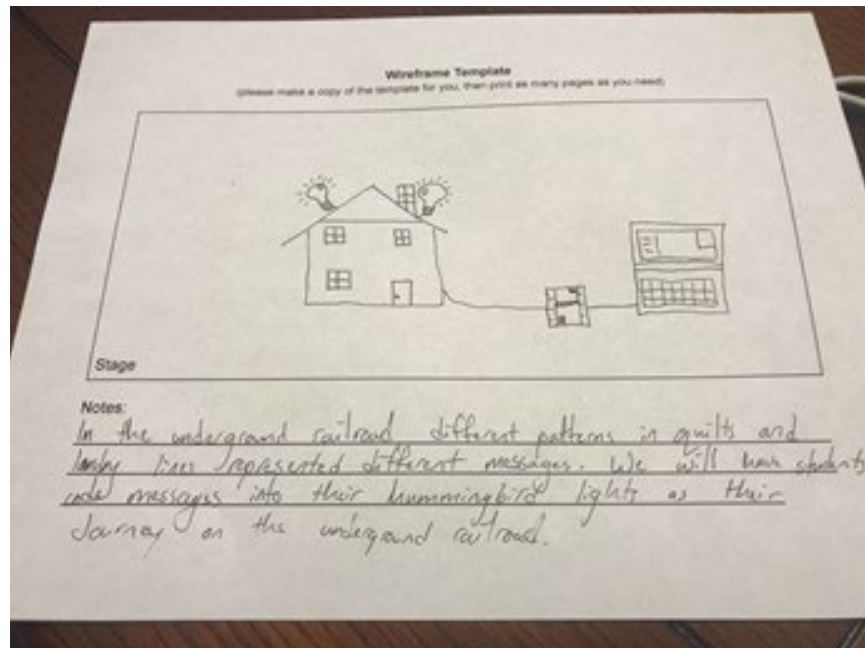 Wireframe Template
(please make a copy of the template for you, then print as many pages as you need)
Stage
Notes:
In the underground railroad different patterns in quilts and
lines represented different messages. We will have students
code messages into their hummingbird lights as their
Journey on the undergound railroad.